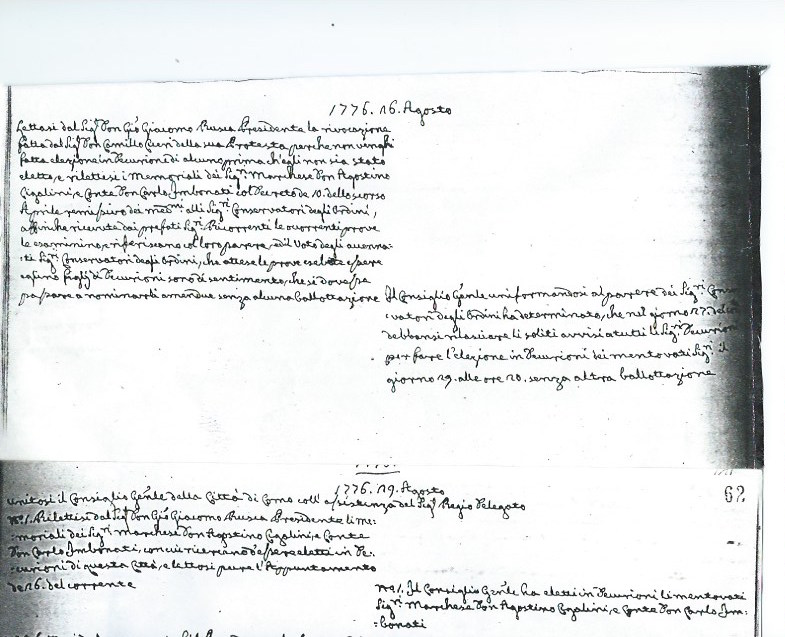 1776. 16. Agosto
Lettasi dal Sig.r Don Gio Giacomo Rusca Presidente la rivocazione
fatta dal Sig.r Don Camillo della sua Protesta perche non venghi
fatta elezione in Decurione di alcuno prima ch'egli non sia stato
eletto, e rilettisi i Memoriali dei Sig.ri Marchese Don Agostino
Cigalini, e Conte Don Carlo Imbonati col Decreto de 10. dello scorso
Aprile remissivo dei med.mi alli Sig.ri Conservatori degli Ordini,
affinche ricevute dai prefati Sig.ri Ricorrenti le occorrenti prove
le esaminino, e riferiscano col loro parere, ed il Voto degli accenna:
:ti Sig.ri Conservatori degli Ordini, che attese le prove essere
figlj di Decurioni sono di sentimento, che si dovesse
passare a nominarli amendue senza alcuna ballottazione
Il Consiglio G'enle uniformandosi al parere dei Sig.ri Conser
:vatori degli Ordini ha determinato, che nel giorno 27. del
debbansi rilasciare li soliti avvisi a tutti li Sig.ri Decurioni
per fare l'elezione in Decurioni dei mentovati Sig.ri il
giorno 29. alle ore 20. senza altra ballottazione
62
1776. 19. Agosto
Unitosi il Consiglio G'enle della Città di Como coll'assistenza del Sig.r Regio Delegato
N.o 1. Rilettisi dal Sig.r Don Gio Giacomo Rusca Presidente li me:
:moriali dei Sig.ri Marchese Don Agostino Cigalini, e Conte
Don Carlo Imbonati, con cui ricercano d'essere eletti in De:
:curioni di questa Città, e lettosi pure l'Appuntamento
de 16. del corrente
N.o 1. Il Consiglio G'enle ha eletti in Decurioni li mentovati
Sig.ri Marchese Don Agostino Cigalini, e Conte Don Carlo Im:
:bonati